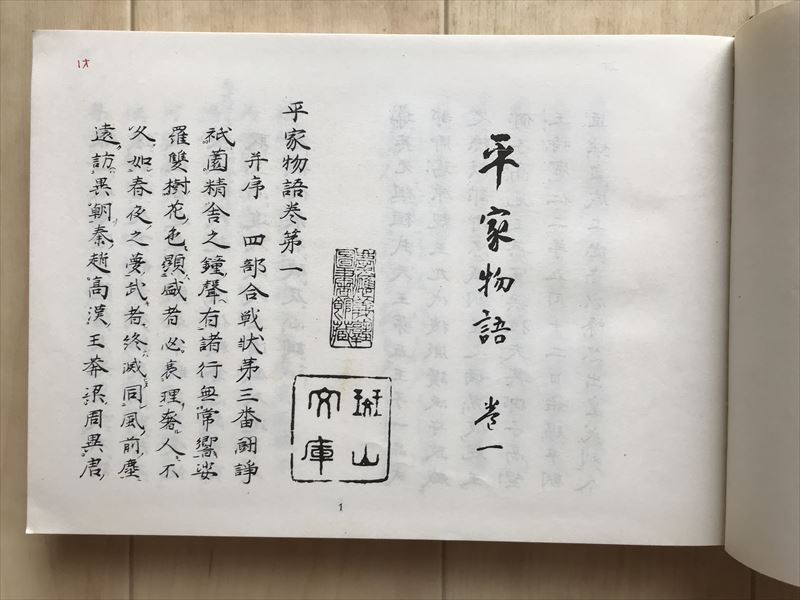 平家物語 巻一
平家物語巻第一
并序 四部合戦状第三番闘諍
祇園精舎之鐘聲有諸行無常響娑
羅雙樹花色顕盛者必衰理奢人不
久如春夜之夢武者終滅同風前塵
遠訪異朝秦趙高漢王莽梁周異唐
斑山文庫
1